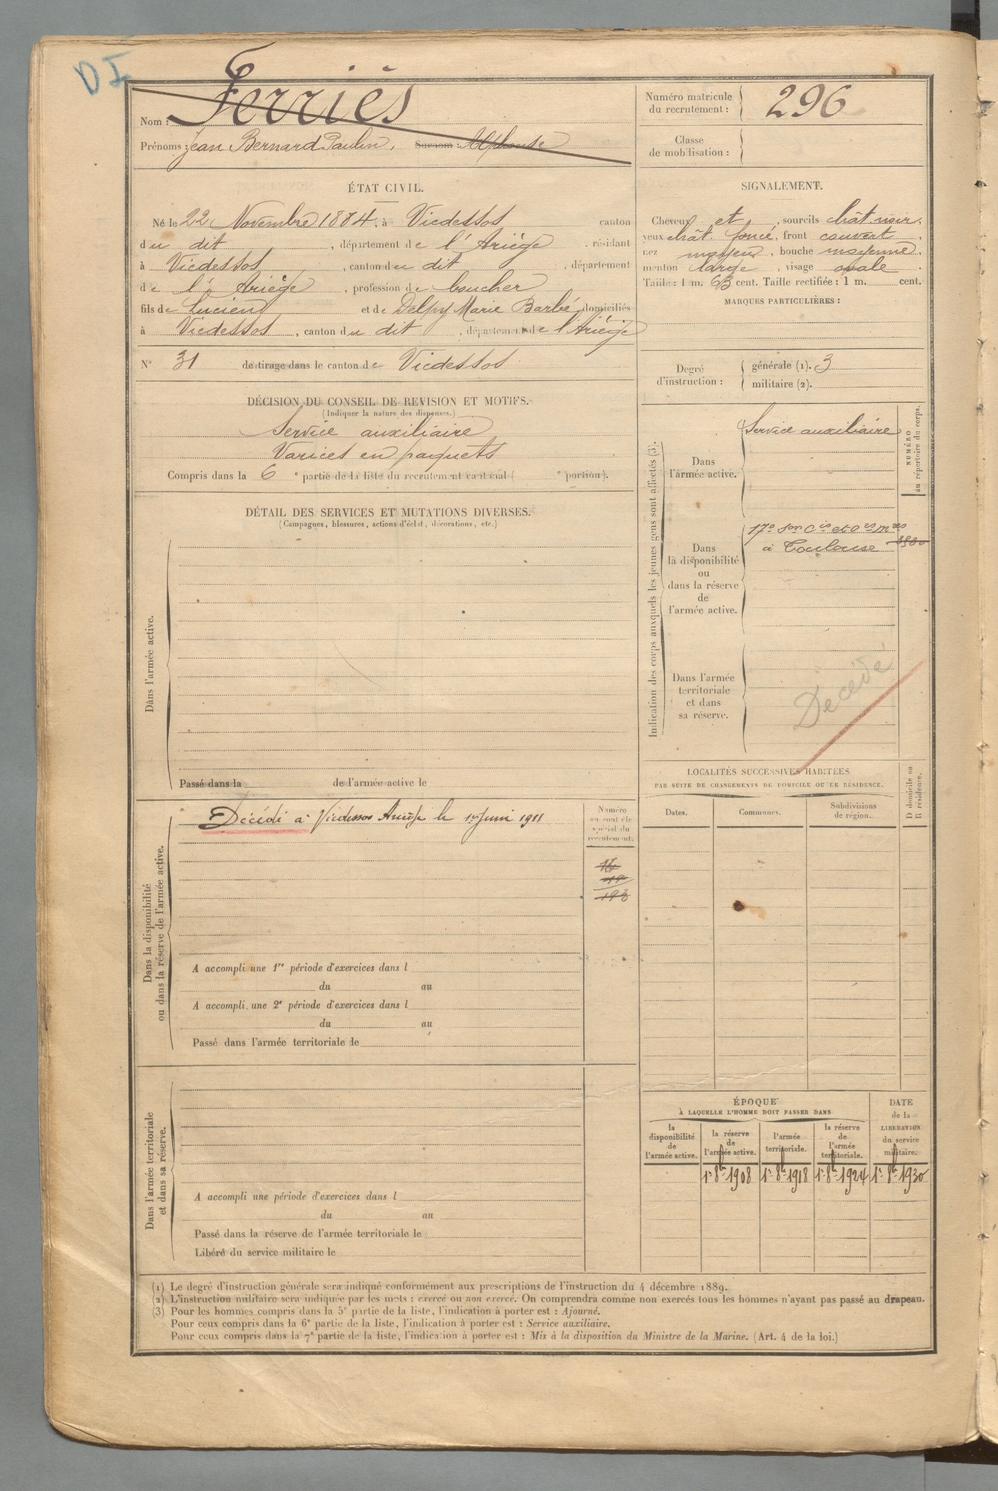 DI
Nom : Ferriès
Prénoms : Jean Bernard Paulin, Surnom : Alphonse
Numéro matricule du recrutement : 296
Classe de mobilisation :
ÉTAT CIVIL.
Né le 22 Novembre 1884, à Vicdessos canton
du dit, département de l'Ariège, résidant
à Vicdessos, canton du dit, département
de l'Ariège, profession de boucher
fils de Lucien et de Delpy Marie Barbe, domiciliés
à Vicdessos, canton du dit, département de l'Ariège
N° 31 de tirage dans le canton de Vicdessos
SIGNALEMENT.
Cheveux et, sourcils chât. noir,
yeux chât. foncé, front couvert,
nez moyen, bouche moyenne,
menton large, visage ovale.
Taille : 1 m. 63 cent. Taille rectifiée : 1 m. cent.
MARQUES PARTICULIÈRES :
Degré d'instruction : générale (1). 3
militaire (2).
DÉCISION DU CONSEIL DE REVISION ET MOTIFS.
(Indiquer la nature des dispenses.)
Service auxiliaire
Varices en paquets
Compris dans la 6e partie de la liste du recrutement cantonal ( e portion).
DÉTAIL DES SERVICES ET MUTATIONS DIVERSES.
(Campagnes, blessures, actions d'éclat, décorations, etc.)
Dans l'armée active.
Passé dans la de l'armée active le
Indication des corps auxquels les jeunes gens sont affectés (3).
NUMÉRO au répertoire du corps.
Dans l'armée active.
Service auxiliaire
Dans la disponibilité ou dans la réserve de l'armée active.
17e Son Cis et
à Toulouse
Dans l'armée territoriale et dans sa réserve.
Décédé
LOCALITÉS SUCCESSIVES HABITÉES
PAR SUITE DE CHANGEMENTS DE DOMICILE OU DE RÉSIDENCE.
Dates. Communes. Subdivisions de région. D domicile ou R résidence.
Dans la disponibilité ou dans la réserve de l'armée active.
Décédé à Vicdessos Ariège le 1er Juin 1911
Numéro au contrôle spécial du recrutement.
A accompli une 1re période d'exercices dans l
du au
A accompli une 2e période d'exercices dans l
du au
Passé dans l'armée territoriale le
Dans l'armée territoriale et dans sa réserve.
A accompli une période d'exercices dans l
du au
Passé dans la réserve de l'armée territoriale le
Libéré du service militaire le
ÉPOQUE
À LAQUELLE L'HOMME DOIT PASSER DANS
la disponibilité de l'armée active. la réserve de l'armée active. l'armée territoriale. la réserve de l'armée territoriale.
DATE de la LIBÉRATION du service militaire.
1er 8bre 1908 1er 8bre 1918 1er 8bre 1924 1er 8bre 1930
(1) Le degré d'instruction générale sera indiqué conformément aux prescriptions de l'instruction du 4 décembre 1889.
(2) L'instruction militaire sera indiquée par les mots : exercé ou non exercé. On comprendra comme non exercés tous les hommes n'ayant pas passé au drapeau.
(3) Pour les hommes compris dans la 5e partie de la liste, l'indication à porter est : Ajourné.
Pour ceux compris dans la 6e partie de la liste, l'indication à porter est : Service auxiliaire.
Pour ceux compris dans la 7e partie de la liste, l'indication à porter est : Mis à la disposition du Ministre de la Marine. (Art. 4 de la loi.)